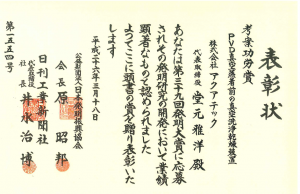 表彰状
考案功労賞
PVD真空蒸着前の真空洗浄乾燥装置
株式会社 アクアテック
代表取締役 堂元 雅洋 殿
あなたは第三十九回発明大賞に応募
されその発明研究の開発において業績
顕著なものと認められました
よってここに頭書の賞を贈り表彰いた
します
平成二十六年三月十八日
公益財団法人 日本発明振興協会
会長 原 昭邦
日刊工業新聞社
代表取締役 社長 井水 治博
第一五五四号